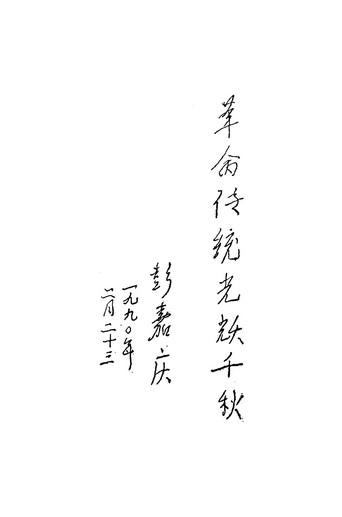 革命传统光跃千秋
彭嘉庆
一九九〇年
二月二十三